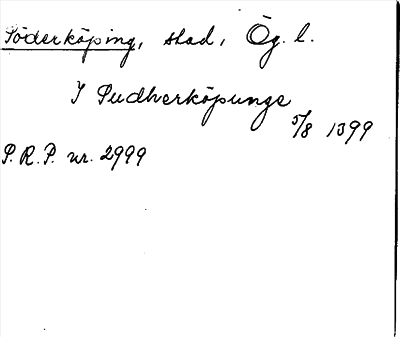 Söderköping, stad, Ög. l.
I Sudherköpunge
5/8 1399
P.R.P. nr. 2999